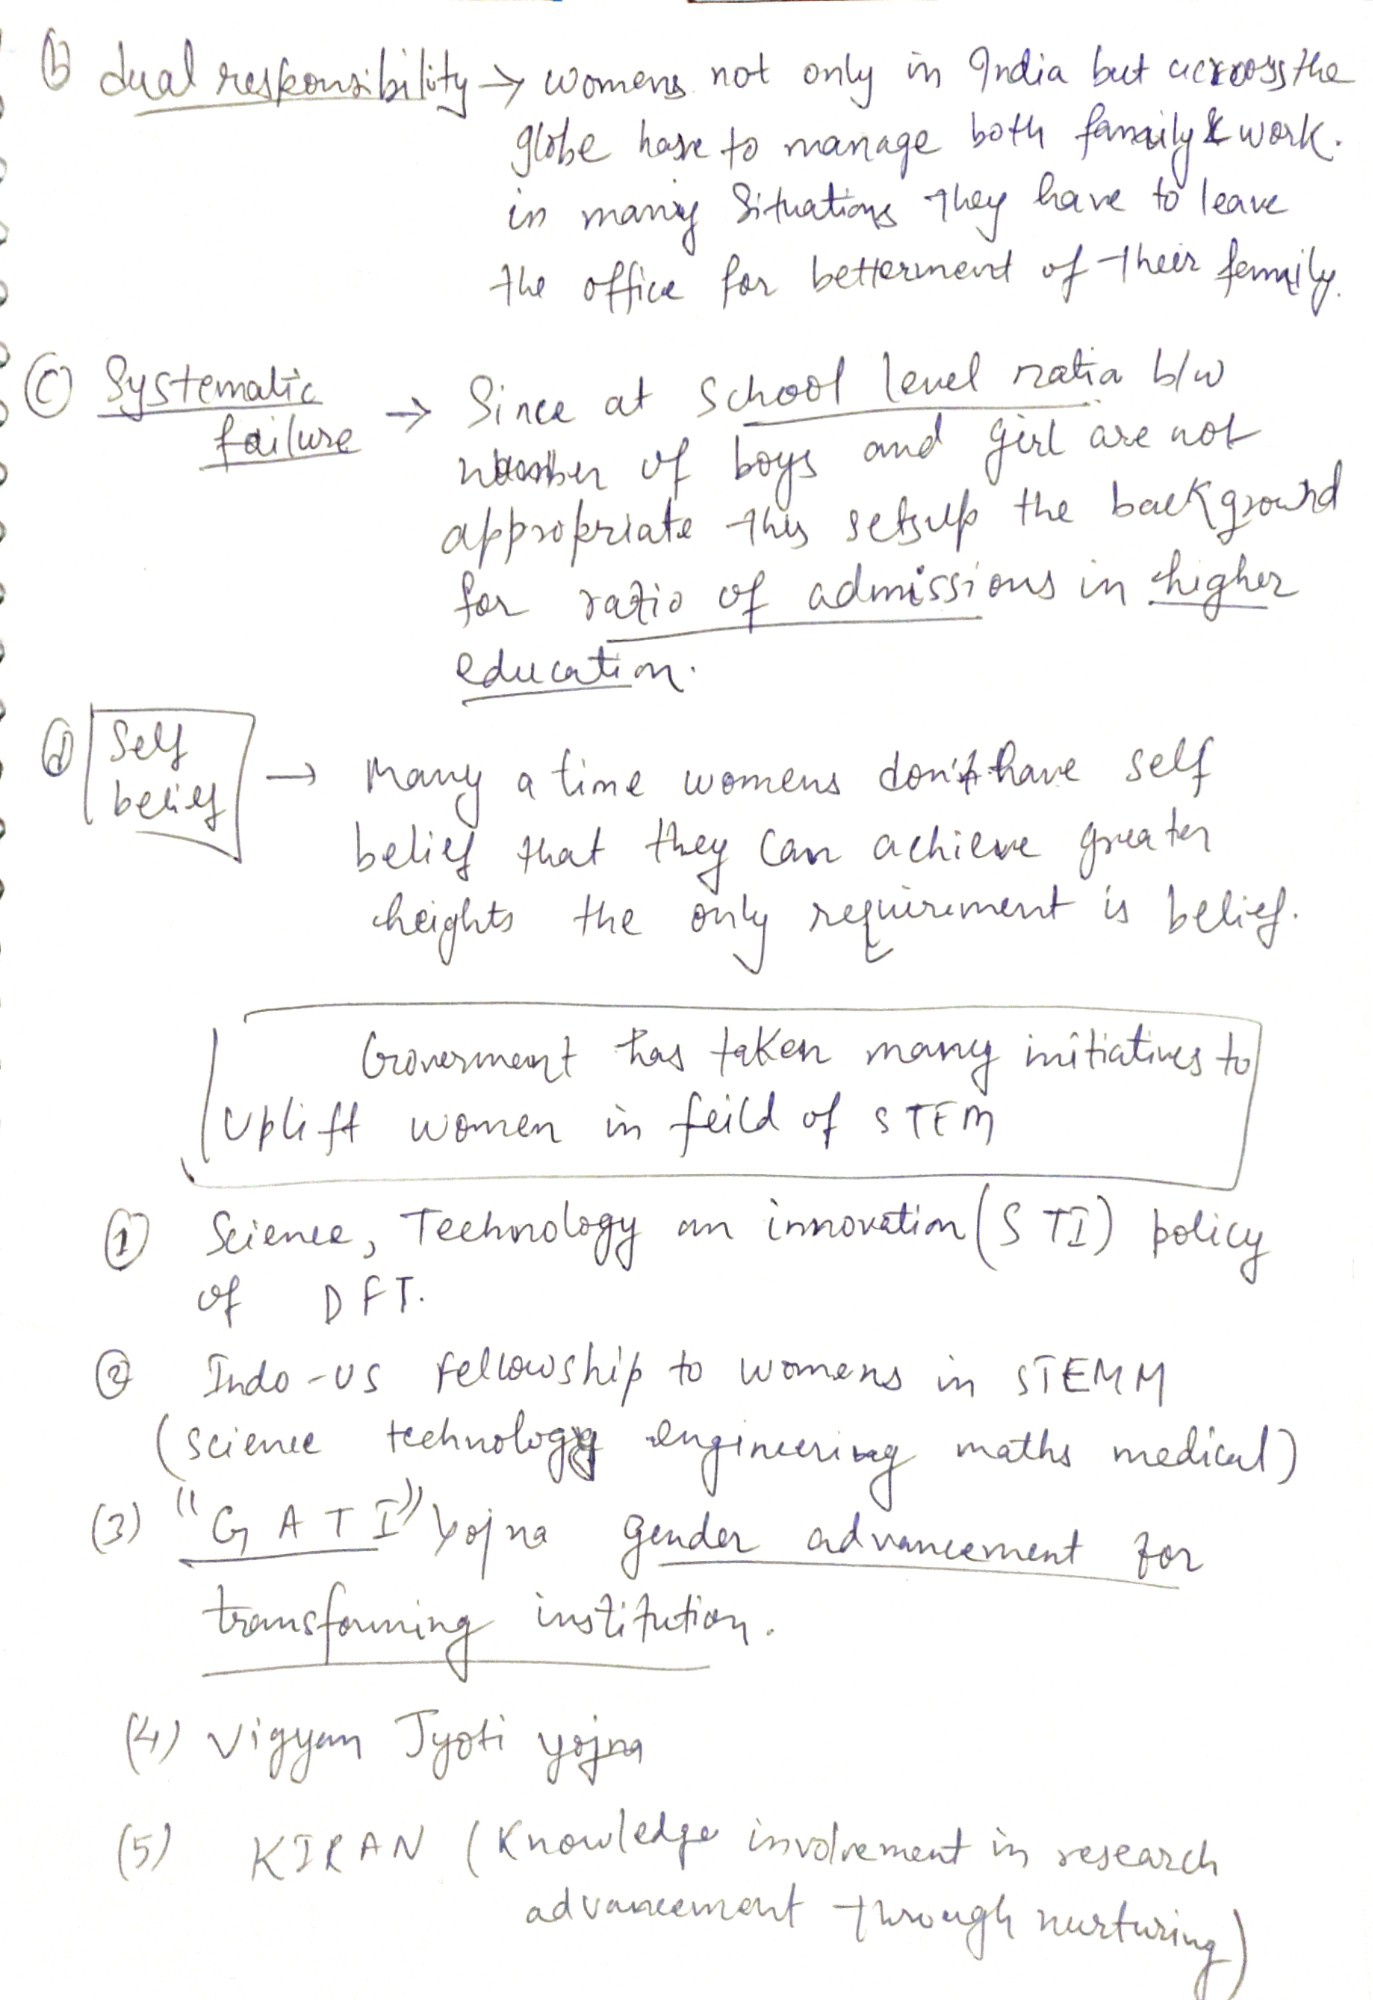 (b) dual responsibility → womens not only in India but across the
globe have to manage both family & work.
in many situations they have to leave
the office for betterment of their family.
(c) Systematic failure → Since at school level ratio b/w
number of boys and girl are not
appropriate this setsup the background
for ratio of admissions in higher
education.
(d) Self belief → Many a time womens don't have self
belief that they can achieve greater
heights the only requirement is belief.
Goverment has taken many initiatives to
uplift women in feild of STEM
(1) Science, Technology an innovation (STI) policy
of DFT.
(2) Indo-US fellowship to womens in STEMM
(science technology engineering maths medical)
(3) "GATI" yojna gender advancement for
transforming institution.
(4) Vigyan Jyoti yojna
(5) KIRAN (Knowledge involvement in research
advancement through nurturing)